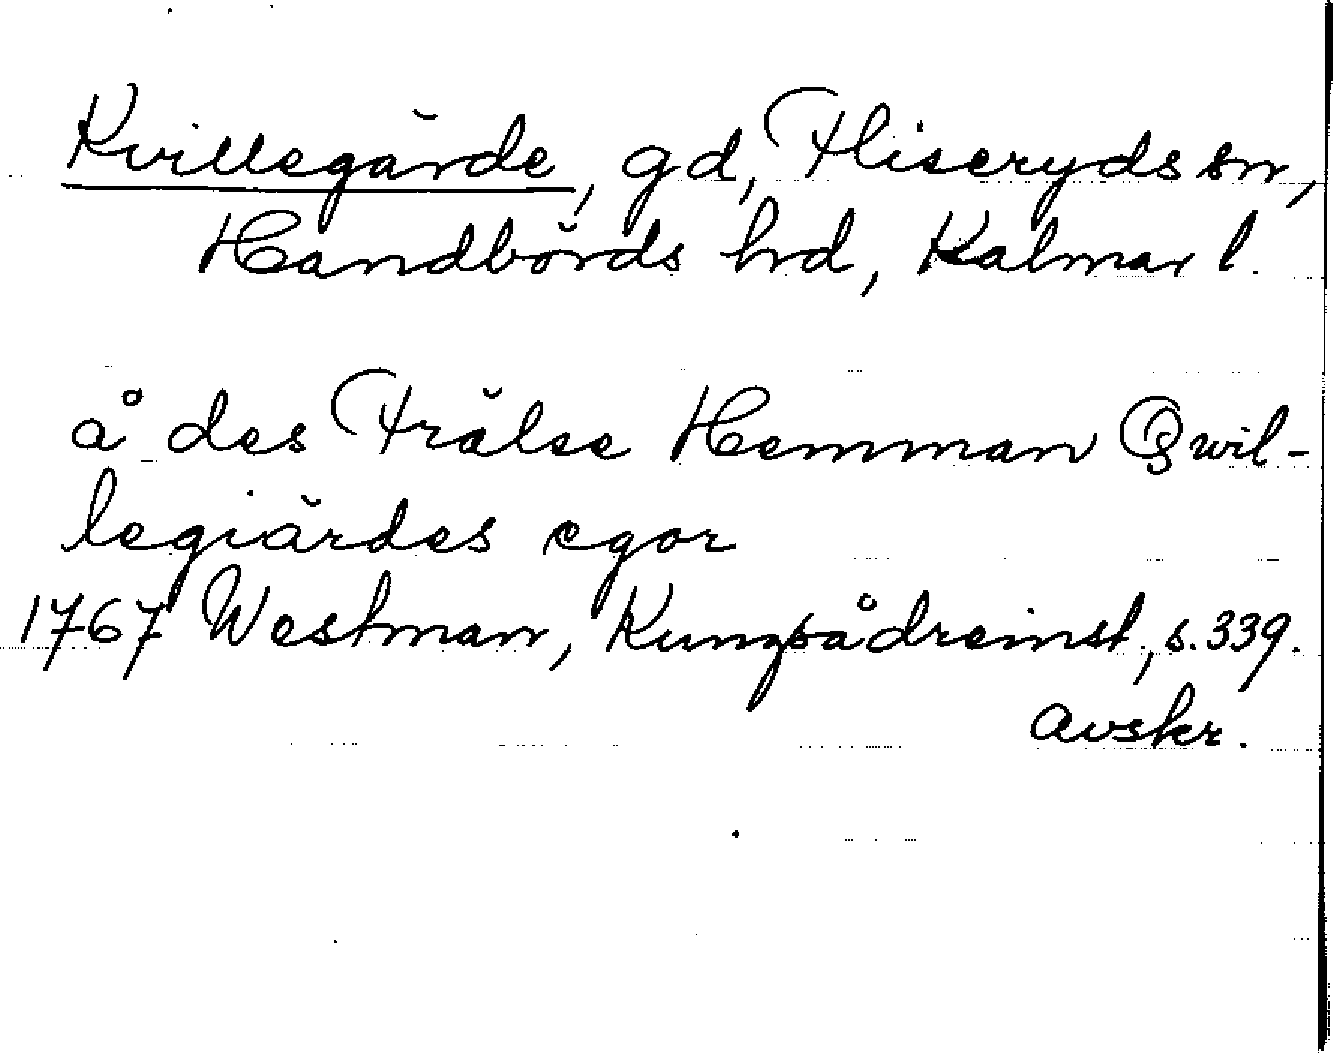 Kvillegärde, gd, Fliseryds sn,
Handbörds hd, Kalmar l.
å des Frälse Hemman Qwil-
legiärdes egor
1767 Westman, Kungsådreinst., s. 339.
avskr.